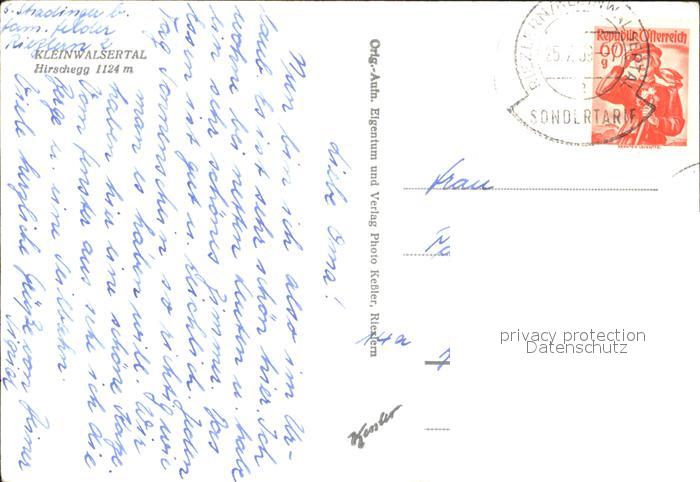 S. Stradinger b.
Fam. Felder
Riezlern 2
KLEINWALSERTAL
Hirschegg 1124 m
Liebe Oma!
Nun bin ich also im Ur-
laub. Es ist sehr schön hier. Ich
wohne bei netten Leuten u. habe
ein sehr schönes Zimmer. Das
Essen ist gut u. reichlich. Jeden
Tag Sonnenschein so richtig wie
man es haben will. Wir
haben hier eine schöne Lage.
Vom Fenster aus sehe ich die
Berge u. eine Seilbahn.
Viele herzliche Grüße von Deiner
Orig.-Aufn. Eigentum und Verlag Photo Keßler, Riezlern
Kessler
RIEZLERN
SONDERTARIF
Republik Österreich
60 g
Frau
14a
privacy protection
Datenschutz